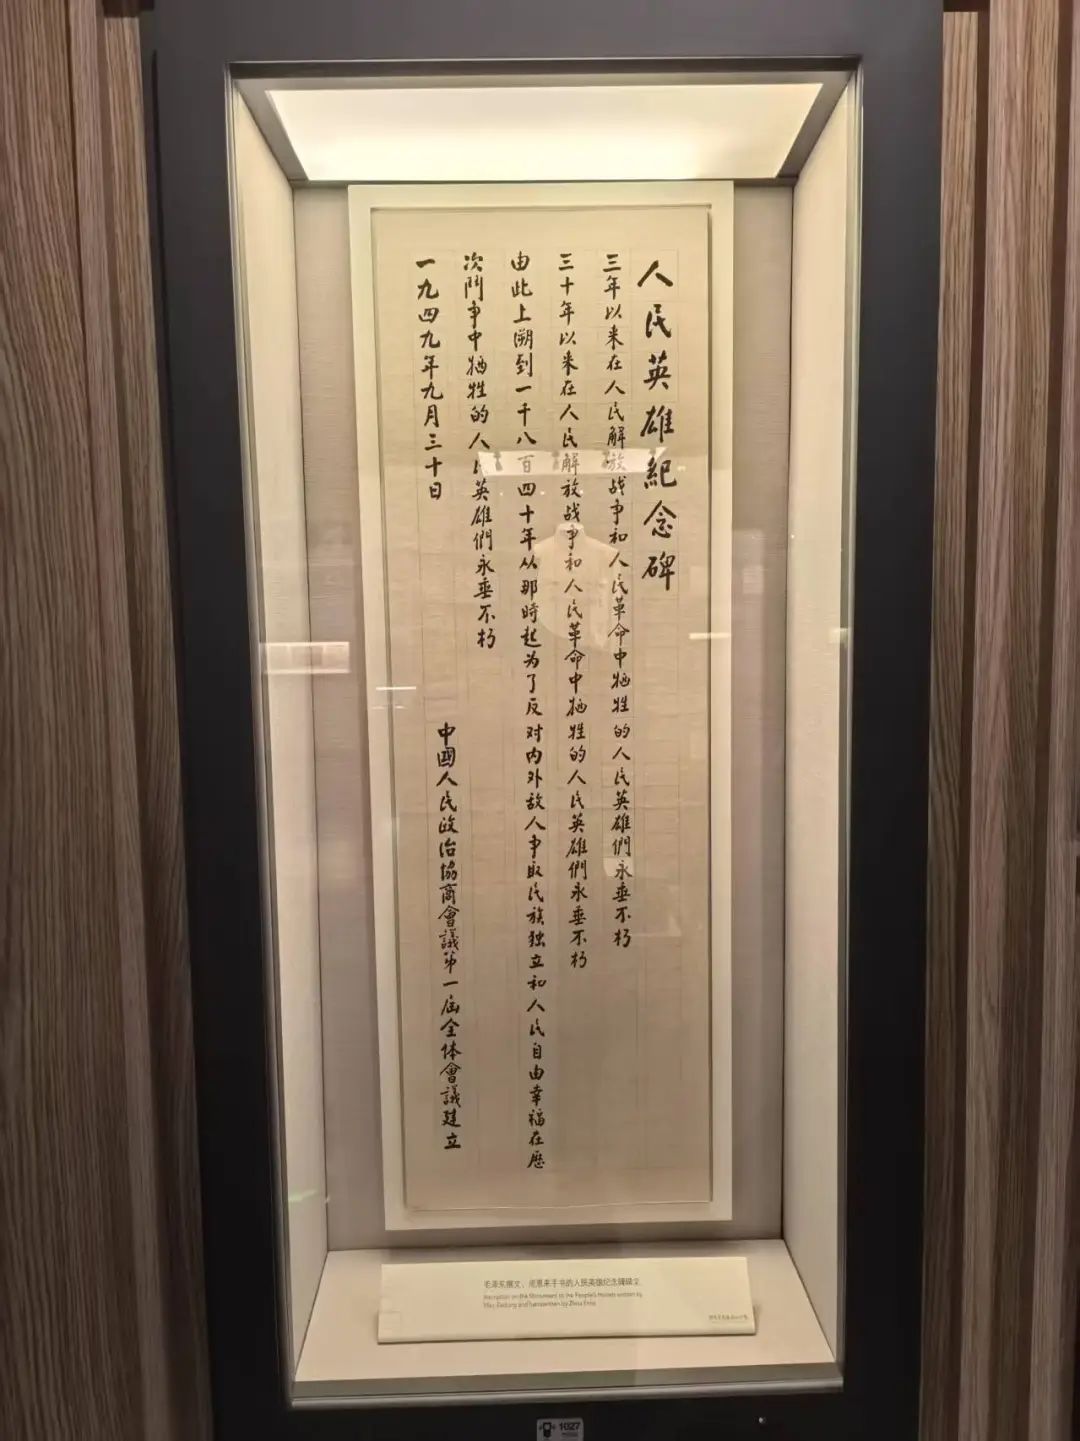 人民英雄紀念碑
三年以来在人民解放战争和人民革命中牺牲的人民英雄們永垂不朽
三十年以来在人民解放战争和人民革命中牺牲的人民英雄們永垂不朽
由此上溯到一千八百四十年从那時起为了反对内外敌人争取民族独立和人民自由幸福在歷
次鬥争中牺牲的人民英雄們永垂不朽
一九四九年九月三十日
中國人民政治協商會議第一届全体會議建立
毛泽东撰文、周恩来手书的人民英雄纪念碑碑文
Inscription on the Monument to the People's Heroes written by
Mao Zedong and handwritten by Zhou Enlai
1027